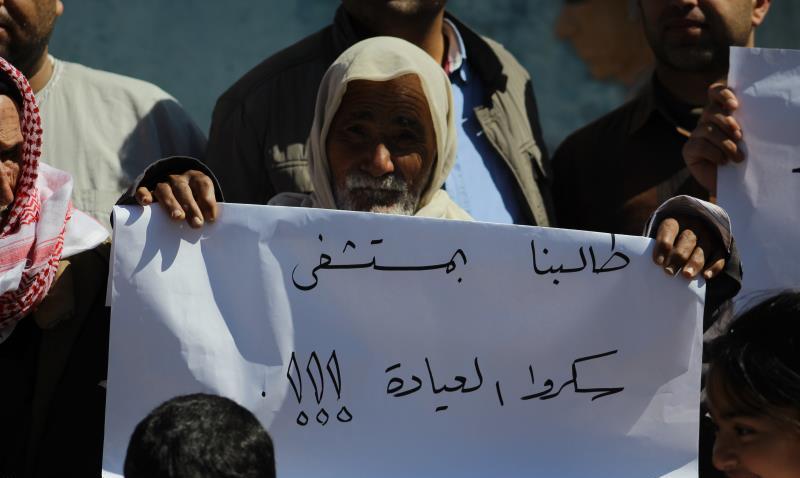 طالبنا بمستشفى
سكروا العيادة !!!.